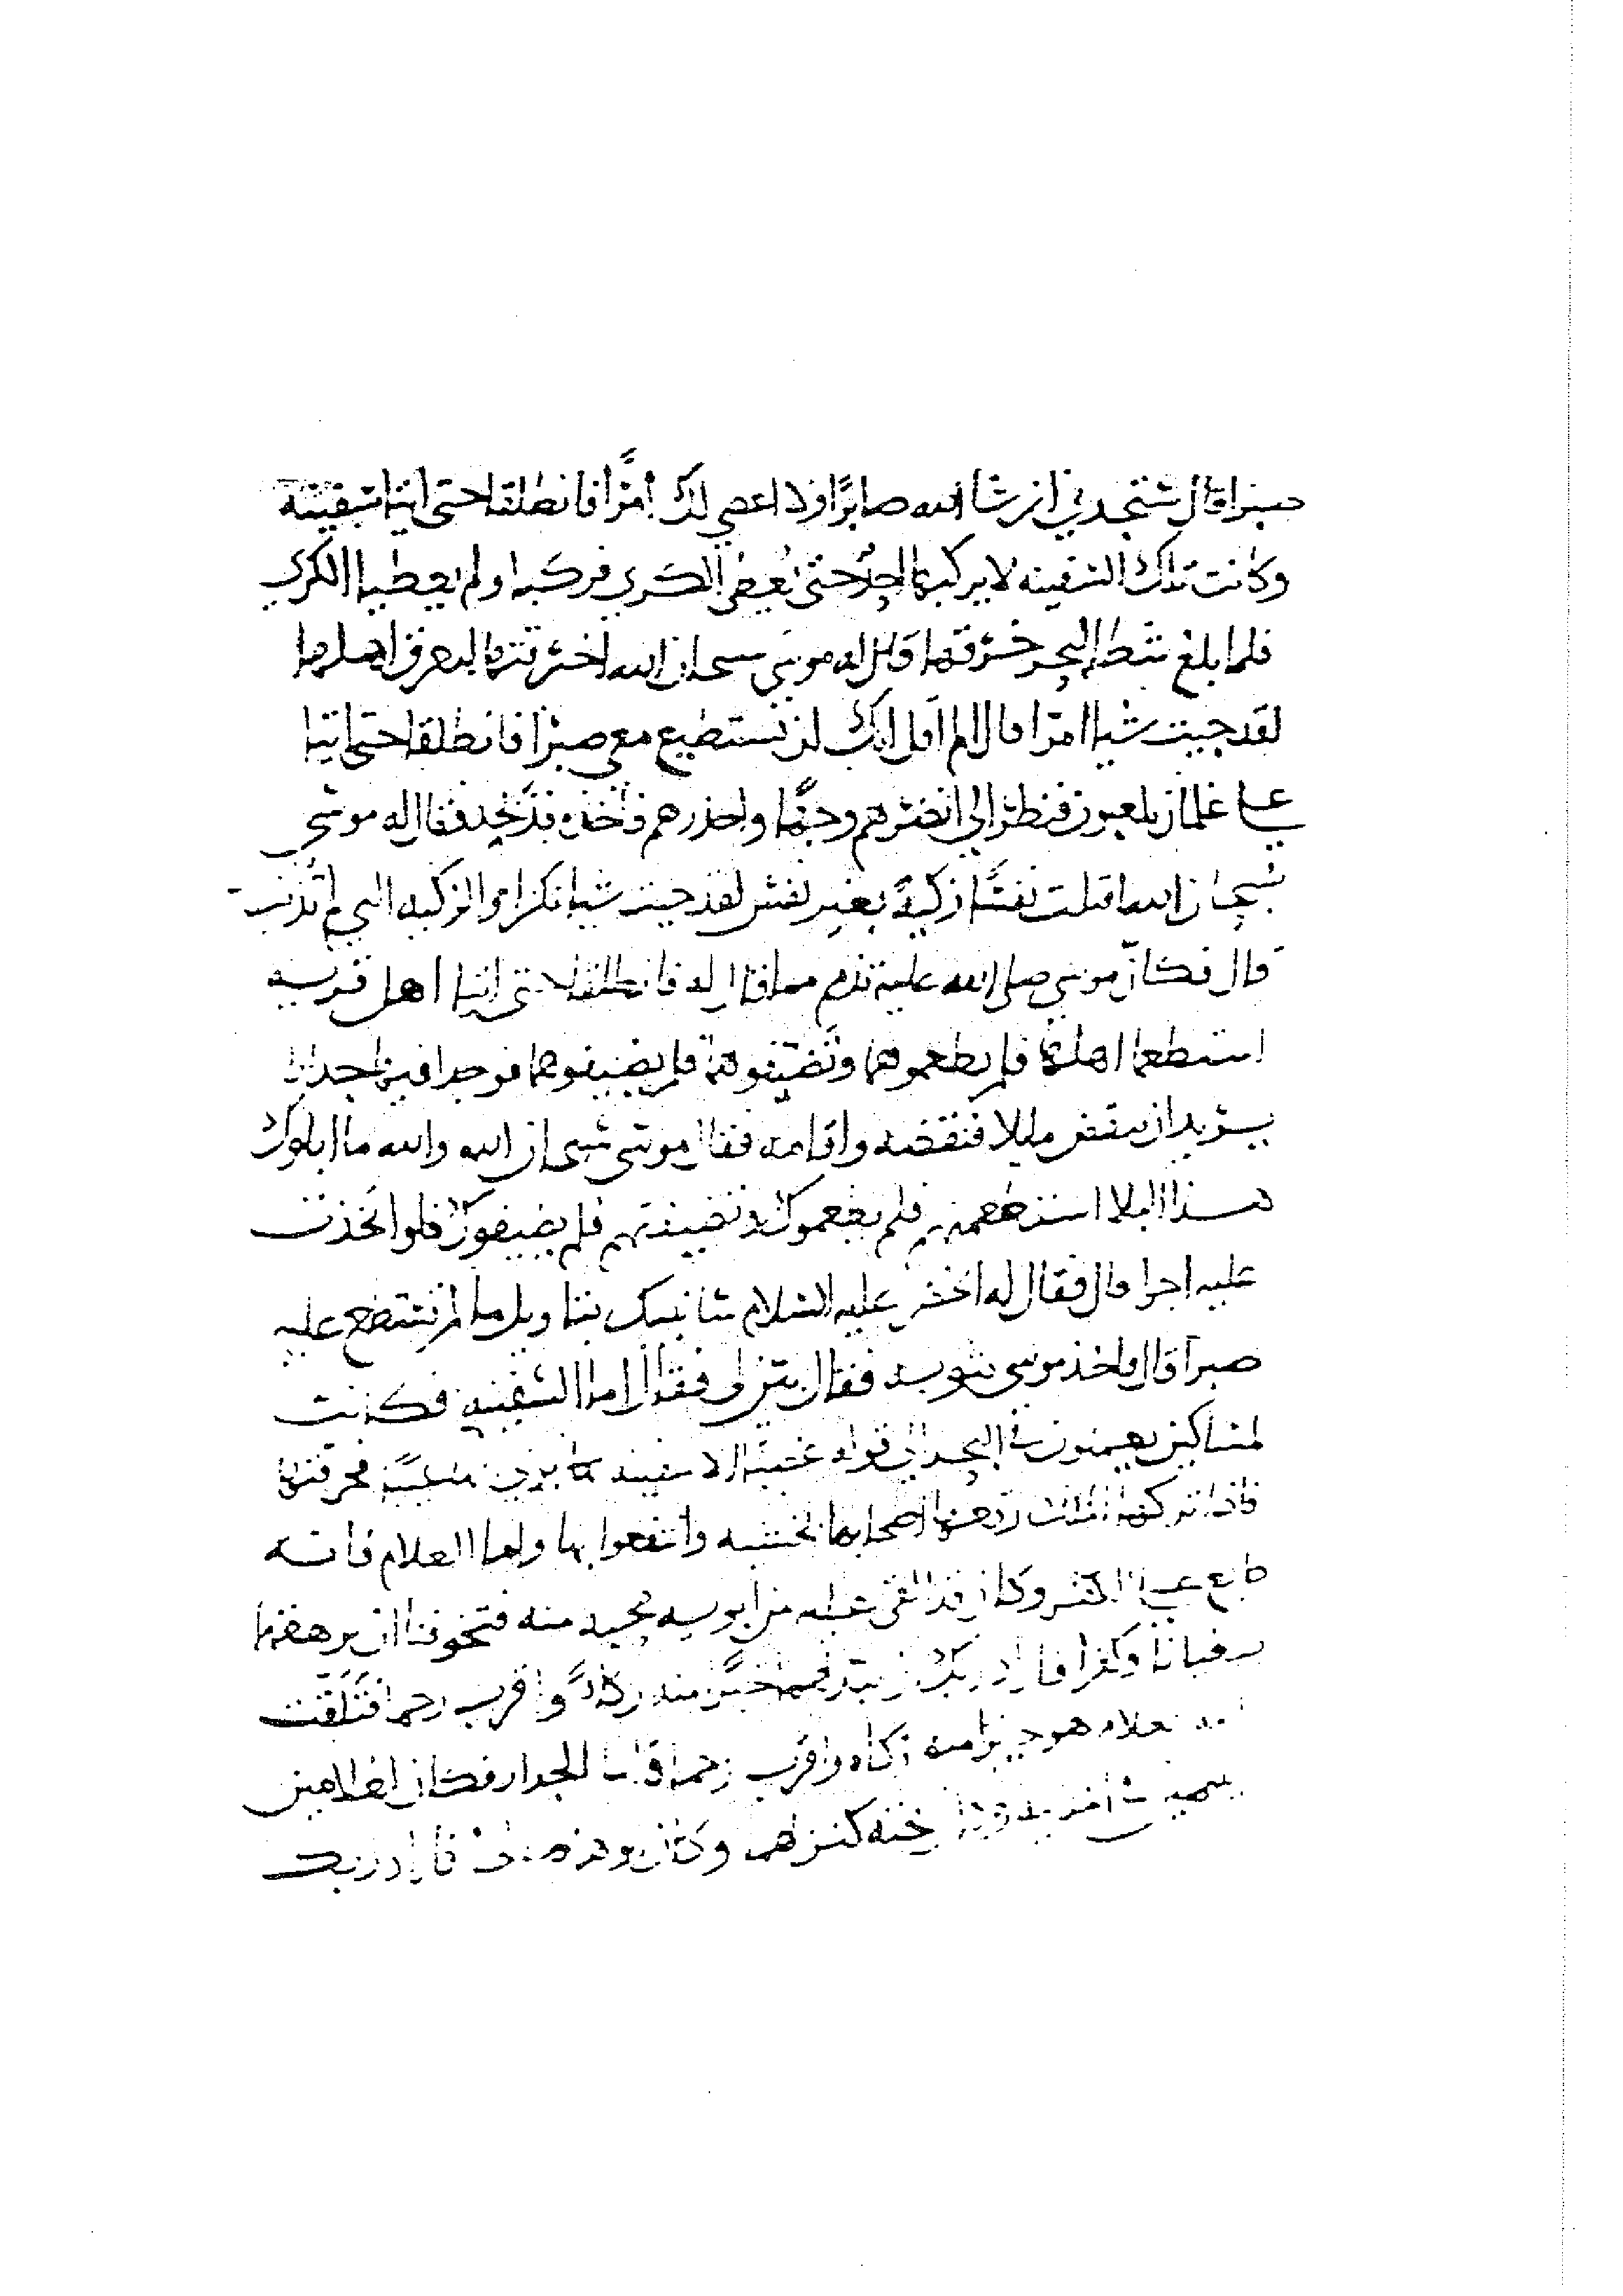 صبرا قال ستجدني ان شا الله صابرًا ولا اعصي لك امرًا فانطلقا حتى اتيا سفينة
وكانت تلك السفينه لا يركبها احد حتى يعطى الكري فركبا ولم يعطيا الكري
فلما بلغ شط البحر خرقها قال له موسى سبحان الله اخرقتها ليغرق اهلها
لقد جيت شيا امرا قال الم اقل انك لن تستطيع معي صبرًا فانطلقا حتى اتيا
على غلمان يلعبون فنظر الى انضرهم وجهًا فاخذه فذبحه فقال له موسى
سبحان الله اقتلت نفسًا زكيةً بغير نفس لقد جيت شيا نكرا والزكيه التي لم تذنب
قال فكان موسى صلى الله عليه ندم مما قال له فانطلقا حتى اتيا اهل قريه
استطعما اهلها فلم يطعموهما وتضيفوهم فلم يضيفوهما فوجدا فيها جدارا
يريد ان ينقض مايلا فنقضه واقامه فقال موسى سبحان الله والله ما ابلوك
هذا البلا استطعمتهم فلم يطعموك وتضيفتهم فلم يضيفوك فلو اتخذت
عليه اجرا قال فقال له الخضر عليه السلام سانبيك بتاويل ما لم تستطع عليه
صبرًا قال واخذ موسى بثوبه فقال بين لي فقال اما السفينه فكانت
لمساكين يعملون في البحر الى قوله غصبًا الا سفينه معيبة فخرقتها
فاذا تركها رقعها اصحابها بخشبه وانتفعوا بها واما الغلام فانه
طبع على الكفر وكان قد القي عليه من ابويه محبه منه فتخوفنا ان يرهقهما
طغيانا وكفرا فاراد ربك ان يبدلهما خيرًا منه زكاةً واقرب رحما فتلقت
امه بغلام هو خير منه زكاه واقرب رحما واما الجدار فكان لغلامين
يتيمين في المدينه وكان تحته كنز لهما وكان ابوهما صالحا فاراد ربك